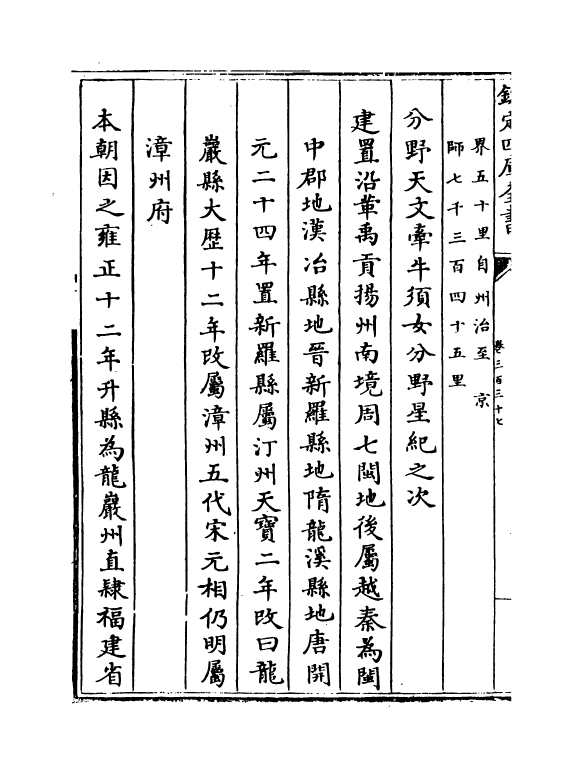 欽定四庫全書
卷三百三十七
界五十里自州治至 京
師七千三百四十五里
分野天文牽牛須女分野星紀之次
建置沿革禹貢揚州南境周七閩地後屬越秦為閩
中郡地漢冶縣地晉新羅縣地隋龍溪縣地唐開
元二十四年置新羅縣屬汀州天寶二年改曰龍
巖縣大歷十二年改屬漳州五代宋元相仍明屬
漳州府
本朝因之雍正十二年升縣為龍巖州直隸福建省